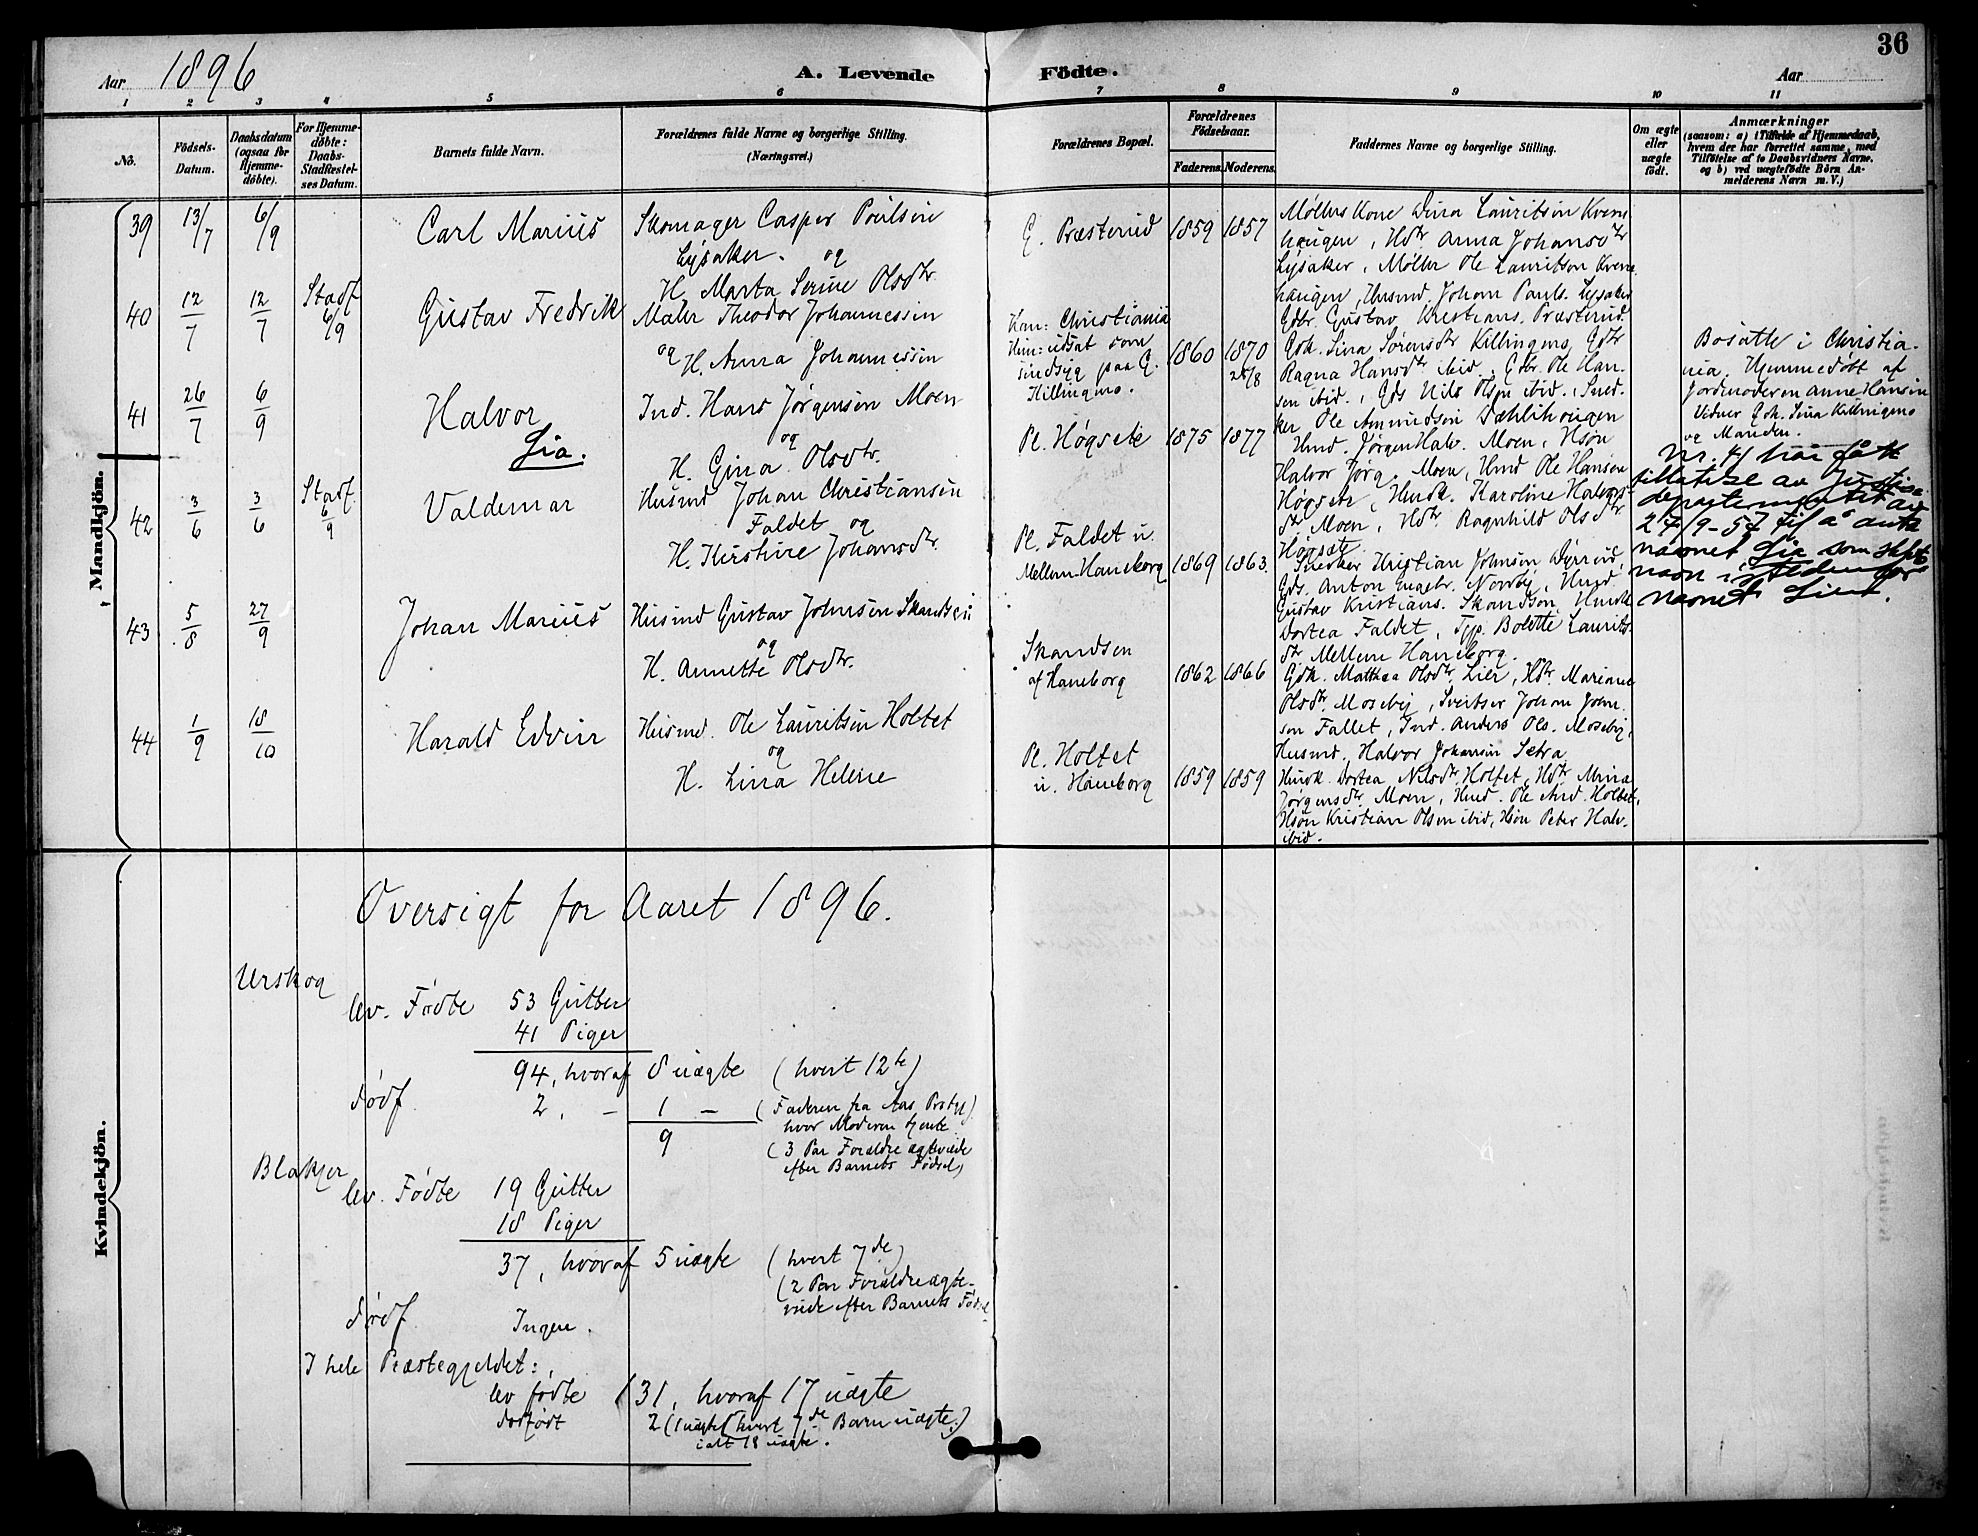 36
Aar 1896
A. Levende Födte.
Aar
1 2 3 4 5 6 7 8 9 10 11
No.
Födsels-Datum.
Daabsdatum (ogsaa for Hjemme-döbte).
For Hjemme-döbte: Daabs-Stadfæstel-ses Datum.
Barnets fulde Navn.
Forældrenes fulde Navne og borgerlige Stilling.
(Næringsvei.)
Forældrenes Bopæl.
Forældrenes Födselsaar.
Faderens. Moderens.
Faddernes Navne og borgerlige Stilling.
Om ægte eller uægte födt.
Anmærkninger
(saasom: a) i Tilfælde af Hjemmedaab,
hvem der har forrettet samme, med
Tilföielse af to Daabsvidners Navne,
og b) ved uægtefödte Börn An-
melderens Navn m.V.)
Mandkjön.
39 13/7 6/9 Carl Marius
Skomager Casper Poulsen
Lysaker. og
H. Marta Serine Olsdtr.
G. Præsterud 1859 1857
Møllerskone Dina Lauritsen Kvern
haugen, Hdtr Anna Johansdtr
Lysaker, Møller Ole Lauritsen Kvern
haugen, Husmd. Johan Pauls. Lysaker
Gdbr. Gustav Kristians. Præsterud.
40 12/7 12/7 Stadf. 6/9 Gustav Fredrik
Maler Theodor Johannessen
og H. Anna Johannessen
Han: Christiania
Hun: udsat som
sindsyg paa G.
Killingmo.
1860 1870
28/8
Gdk. Lina Sørensdtr Killingmo, Gdtr
Ragna Hansdtr ibid., Gdbr. Ole Han-
sen ibid., Gds Nils Olsen ibid., Sned-
ker Ole Amundsen Dæhlihougen
Bosatte i Christia-
nia. Hjemmedøbt af
Jordmoderen Anne Hansen
Vidner Gdk. Lina Killingmo
og Manden.
41 26/7 6/9 Halvor
Lia.
Ind. Hans Jørgensen Moen
og
H. Gina Olsdtr.
Pl. Høgsete 1875 1877
Husmd. Jørgen Halv. Moen, Hsøn
Halvor Jørg. Moen, Husmd Ole Hansen
Høgsete, Husmk. Karoline Halvors-
dtr Moen, Hdtr. Ragnhild Olsdtr
Høgsete.
Nr. 41 har fått
tillatelse av Justis-
departementet av
27/9-57 til å anta
navnet Lia som slekts-
navn istedenfor
navnet Lien.
42 3/6 3/6 Stadf. 6/9 Valdemar
Husmd Johan Christiansen
Faldet og
H. Kirstine Johansdtr.
Pl. Faldet u.
Mellem-Haneborg 1869 1863.
Snedker Kristian Johnsen Dyrrud,
Gds. Anton Engebr. Nordby, Husmd.
Gustav Kristians. Skandsen, Husmk
Dortea Faldet, Tjp. Bolette Laurits-
dtr Mellem Haneborg.
43 5/8 27/9 Johan Marius
Husmd Gustav Johnsen Skandsen
og
H. Annette Olsdtr.
Skandsen
af Haneborg 1862 1866
Gdk. Mathea Olsdtr. Lier, Hdtr. Mariane
Olsdtr. Moseby, Sveitser Johan John-
sen Fallet, Ind. Anders Ols. Moseby,
Husmd. Halvor Johansen Sætra
44 1/9 18/10 Harald Edvin
Husmd. Ole Lauritsen Holtet
og
H. Lina Helene
Pl. Holtet
u. Haneborg 1859 1859
Husmk. Dortea Nilsdtr. Holtet, Hdtr Mina
Jørgensdtr. Moen, Husmd. Ole And. Holtet,
Hsøn Kristian Olsen ibid, Hsøn Peter Halv.
ibid.
Kvindekjön.
Oversigt for Aaret 1896.
Urskog
lev. Fødte 53 Gutter
41 Piger
94, hvoraf 8 uægte (hvert 12te)
dødf. 2, - 1 - (Faderen fra Aas Prstgj.
hvor Moderen tjente)
9 (3 Par Forældre ægteviede
efter Barnets Fødsel)
Blakjer
lev. Fødte 19 Gutter
18 Piger
37, hvoraf 5 uægte (hvert 7de)
(2 Par Forældre ægte-
viede efter Barnets Fødsel
dødf. Ingen.
I hele Præstegjeldet:
lev fødte 131, hvoraf 17 uægte
dødfødt 2 (1 uægte) (hvert 7de Barn uægte.)
ialt 18 uægte.